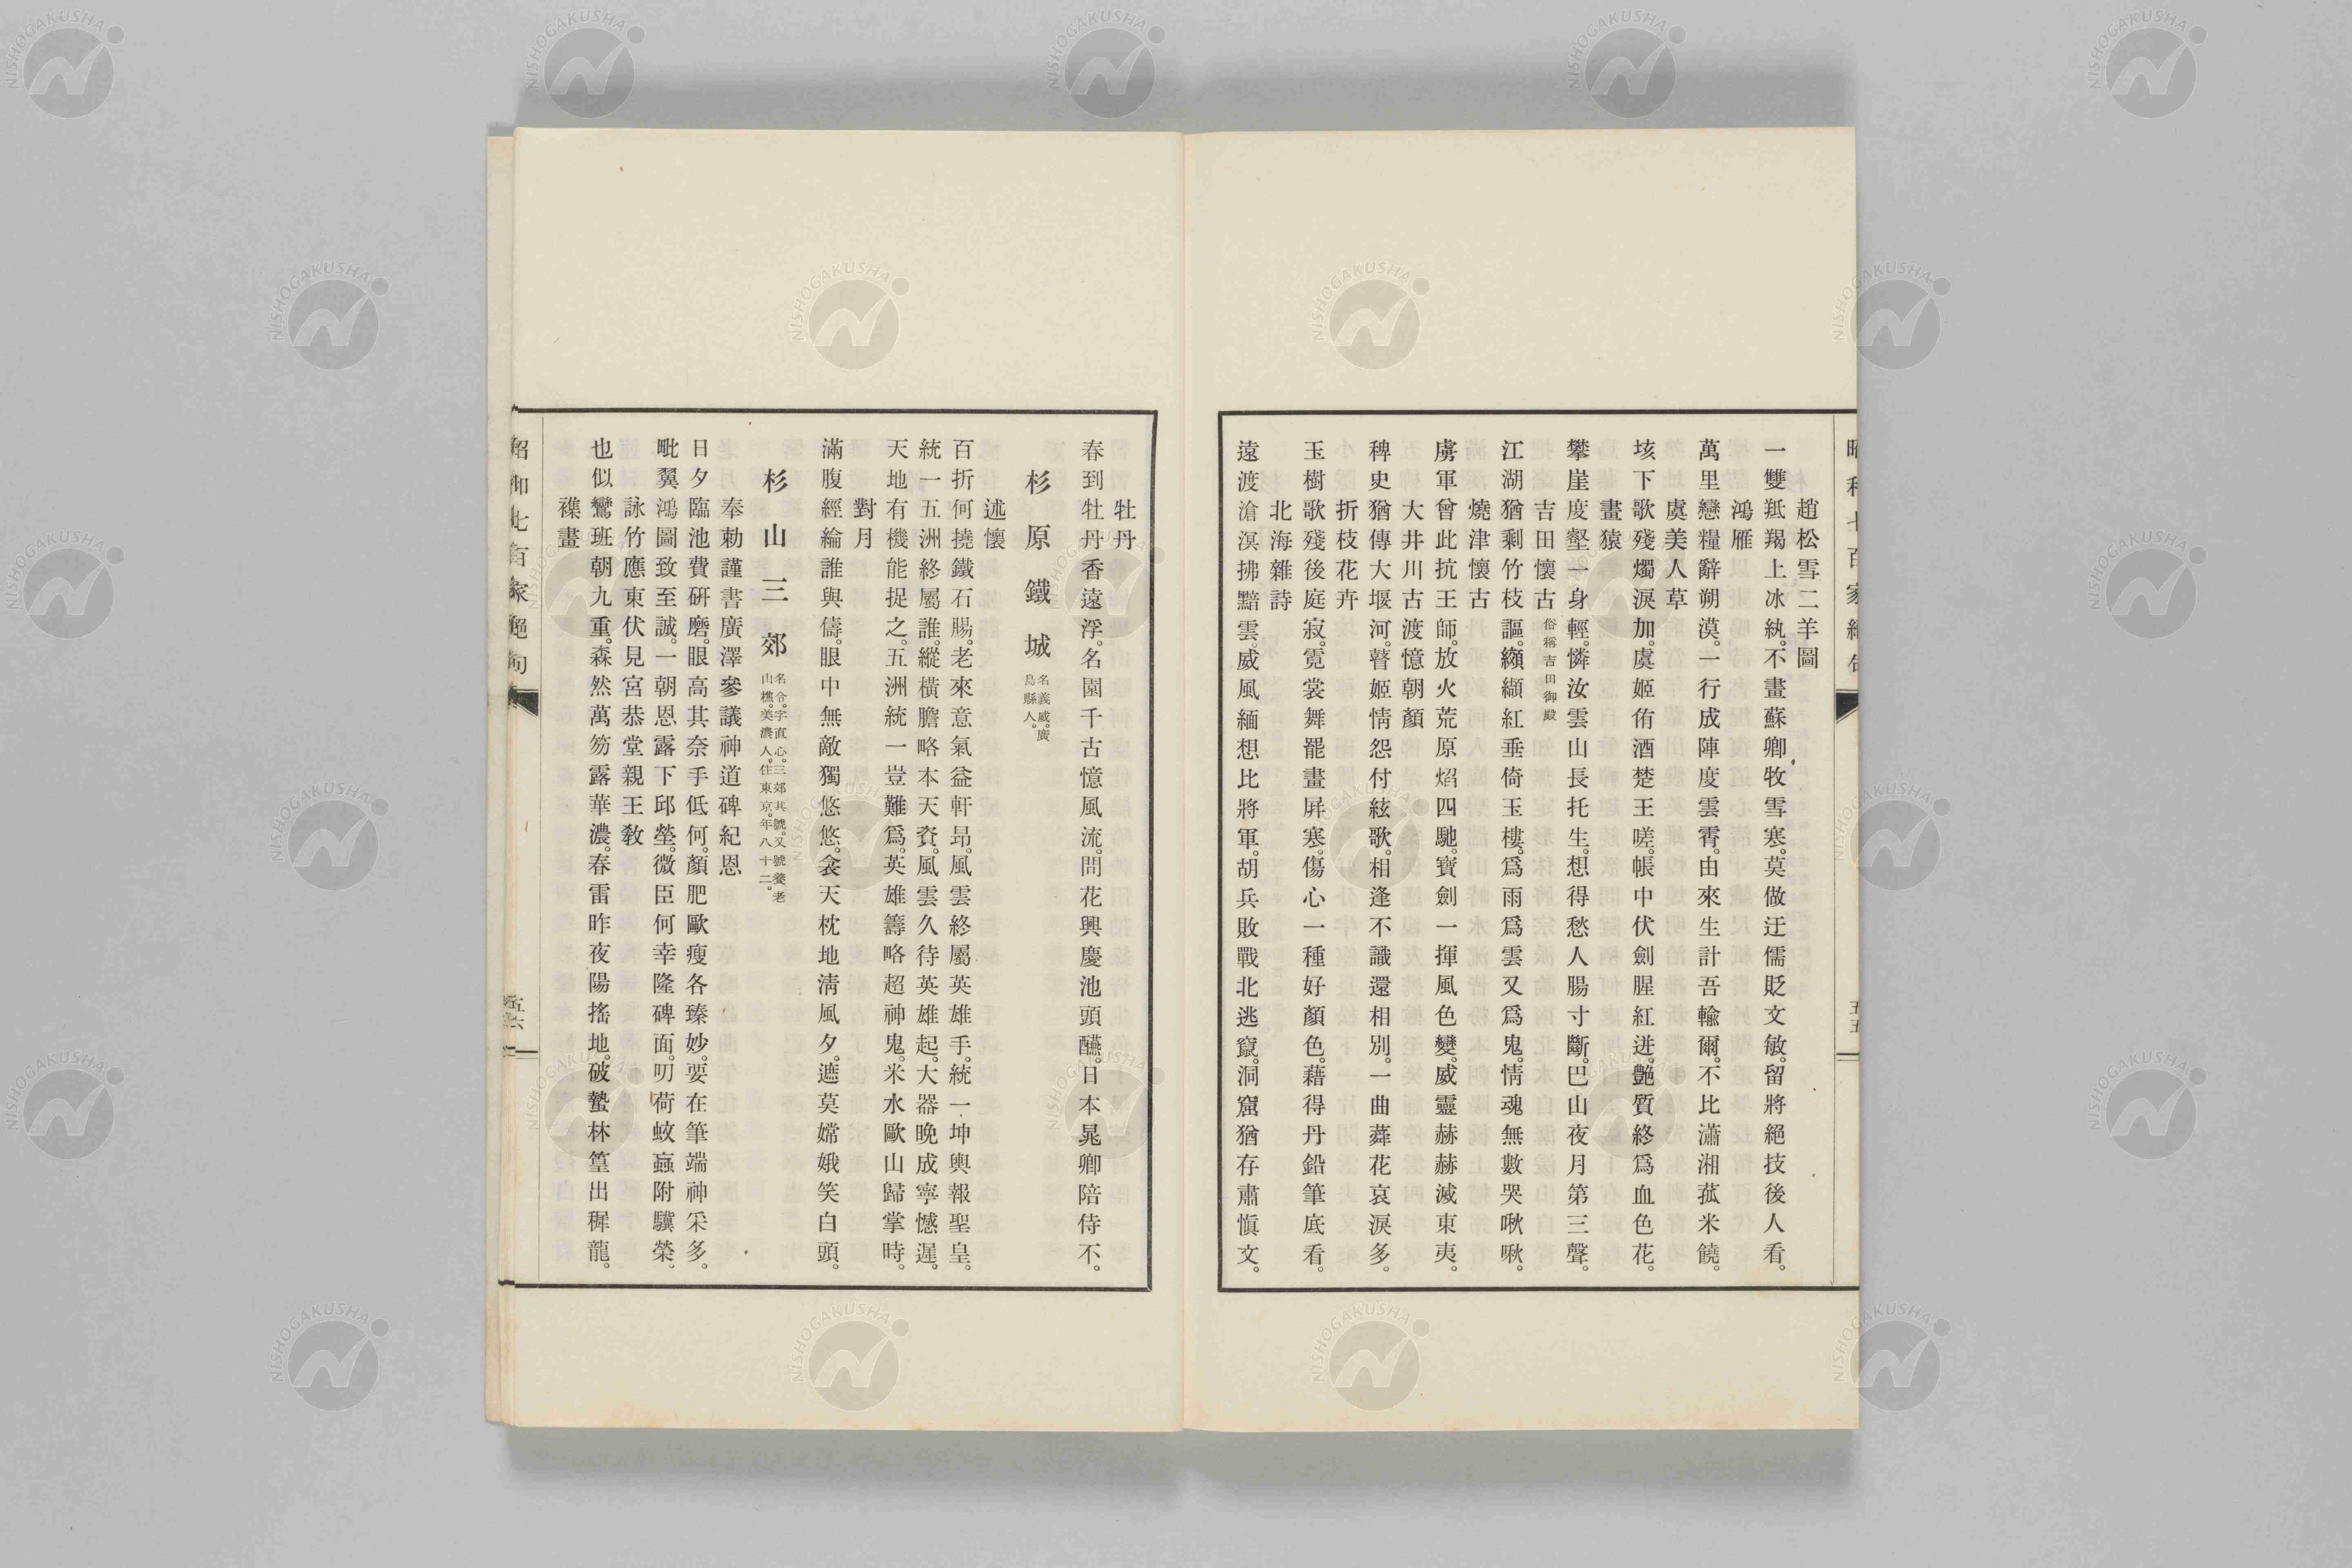 趙松雪二羊圖
一雙羝羯上冰紈。不畫蘇卿牧雪寒。莫做迂儒貶文敏。留將絕技後人看。
鴻雁
萬里戀糧辭朔漠。一行成陣度雲霄。由來生計吾輸爾。不比瀟湘菰米饒。
虞美人草
垓下歌殘燭淚加。虞姬侑酒楚王嗟。帳中伏劍腥紅迸。艷質終爲血色花。
畫猿
攀崖度壑一身輕。憐汝雲山長托生。想得愁人腸寸斷。巴山夜月第三聲。
吉田懷古 俗稱吉田御殿
江湖猶剩竹枝謳。纐纈紅垂倚玉樓。爲雨爲雲又爲鬼。情魂無數哭啾啾。
燒津懷古
虜軍曾此抗王師。放火荒原焰四馳。寶劍一揮風色變。威靈赫赫滅東夷。
大井川古渡憶朝顏
稗史猶傳大堰河。瞽姬情怨付絃歌。相逢不識還相別。一曲蕣花哀淚多。
折枝花卉
玉樹歌殘後庭寂。霓裳舞罷畫屛寒。傷心一種好顏色。藉得丹鉛筆底看。
北海雜詩
遠渡滄溟拂黯雲。威風緬想比將軍。胡兵敗戰北逃竄。洞窟猶存肅愼文。
昭和七百家絕句
五五
牡丹
春到牡丹香遠浮。名園千古憶風流。問花興慶池頭醼。日本晁卿陪侍不。
杉原鐵城 名義威。廣島縣人。
述懷
百折何撓鐵石腸。老來意氣益軒昂。風雲終屬英雄手。統一坤輿報聖皇。
統一五洲終屬誰。縱橫膽略本天資。風雲久待英雄起。大器晚成寧憾遲。
天地有機能捉之。五洲統一豈難爲。英雄籌略超神鬼。米水歐山歸掌時。
對月
滿腹經綸誰與儔。眼中無敵獨悠悠。衾天枕地淸風夕。遮莫嫦娥笑白頭。
杉山三郊 名令。字直心。三郊其號。又號養老山樵。美濃人。住東京。年八十二。
奉勅謹書廣澤參議神道碑紀恩
日夕臨池費硏磨。眼高其奈手低何。顏肥歐瘦各臻妙。要在筆端神采多。
毗翼鴻圖致至誠。一朝恩露下邱塋。微臣何幸隆碑面。叨荷蚊蝱附驥榮、
詠竹應東伏見宮恭堂親王敎
也似鸞班朝九重。森然萬笏露華濃。春雷昨夜陽搖地。破蟄林篁出穉龍。
襍畫
昭和七百家絕句
五六